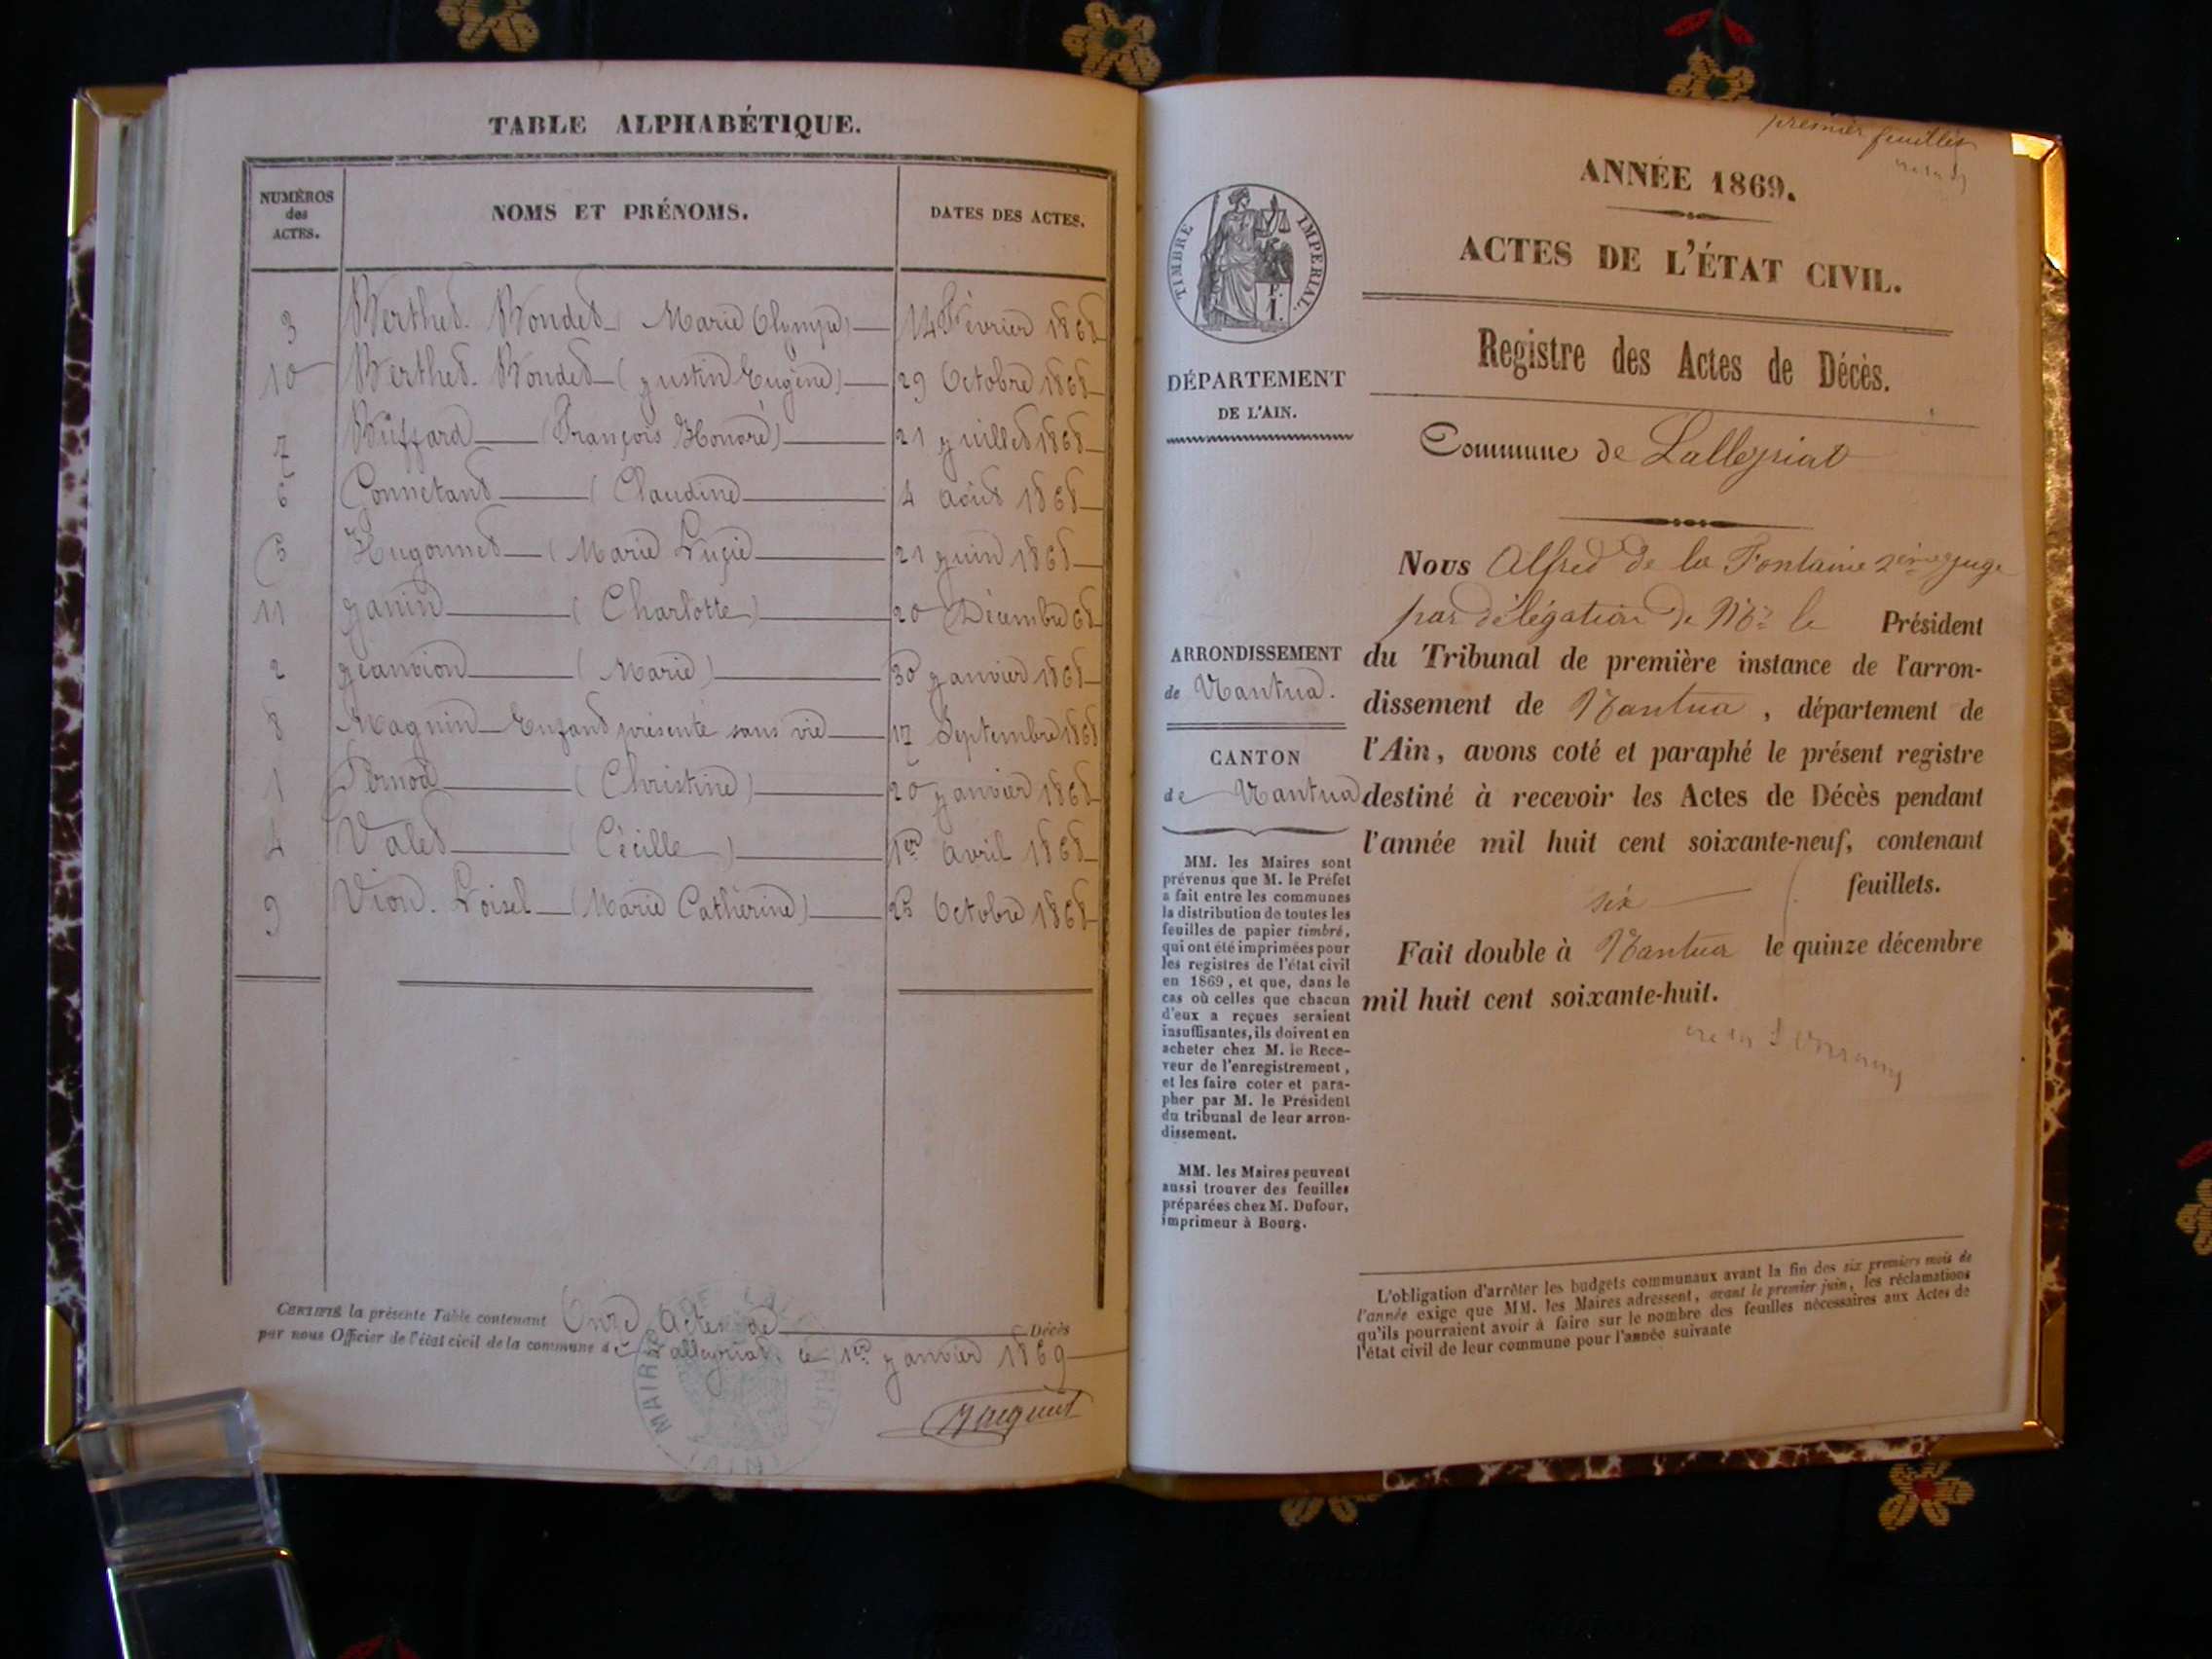 TABLE ALPHABÉTIQUE.
NUMÉROS
des
ACTES.
NOMS ET PRÉNOMS.
DATES DES ACTES.
3 Berthet-Bondet (Marie Olympe) 14 Février 1868
10 Berthet-Bondet (Justin Eugène) 29 Octobre 1868
7 Buffard (François Honoré) 21 Juillet 1868
6 Connetant (Claudine 4 août 1868
5 Hugonnet (Marie Lucie 21 Juin 1868
11 Janin (Charlotte) 20 Décembre 68
2 Jeanvion (Marie) 30 Janvier 1868
8 Magnin Enfant présenté sans vie 17 Septembre 1868
1 Pernod (Christine) 20 Janvier 1868
4 Valet (Cécille) 1er avril 1868
9 Vion-Loisel (Marie Catherine) 25 Octobre 1868
CERTIFIÉ la présente Table contenant Onze Actes de Décès
par nous Officier de l'état civil de la commune de Lalleyriat, le 1er Janvier 1869
MAIRIE DE LALLEYRIAT
(AIN)
premier feuillet
ANNÉE 1869.
ACTES DE L'ÉTAT CIVIL.
Registre des Actes de Décès.
Commune de Lalleyriat
TIMBRE IMPERIAL.
1.
DÉPARTEMENT
DE L'AIN.
ARRONDISSEMENT
de Nantua.
CANTON
de Nantua
MM. les Maires sont
prévenus que M. le Préfet
a fait entre les communes
la distribution de toutes les
feuilles de papier timbré,
qui ont été imprimées pour
les registres de l'état civil
en 1869, et que, dans le
cas où celles que chacun
d'eux a reçues seraient
insuffisantes, ils doivent en
acheter chez M. le Rece-
veur de l'enregistrement,
et les faire coter et para-
pher par M. le Président
du tribunal de leur arron-
dissement.
MM. les Maires peuvent
aussi trouver des feuilles
préparées chez M. Dufour,
imprimeur à Bourg.
Nous Alfred de la Fontaine 2ème Juge
par délégation de Mr le Président
du Tribunal de première instance de l'arron-
dissement de Nantua, département de
l'Ain, avons coté et paraphé le présent registre
destiné à recevoir les Actes de Décès pendant
l'année mil huit cent soixante-neuf, contenant
six feuillets.
Fait double à Nantua le quinze décembre
mil huit cent soixante-huit.
L'obligation d'arrêter les budgets communaux avant la fin des six premiers mois de
l'année exige que MM. les Maires adressent, avant le premier juin, les réclamations
qu'ils pourraient avoir à faire sur le nombre des feuilles nécessaires aux Actes de
l'état civil de leur commune pour l'année suivante